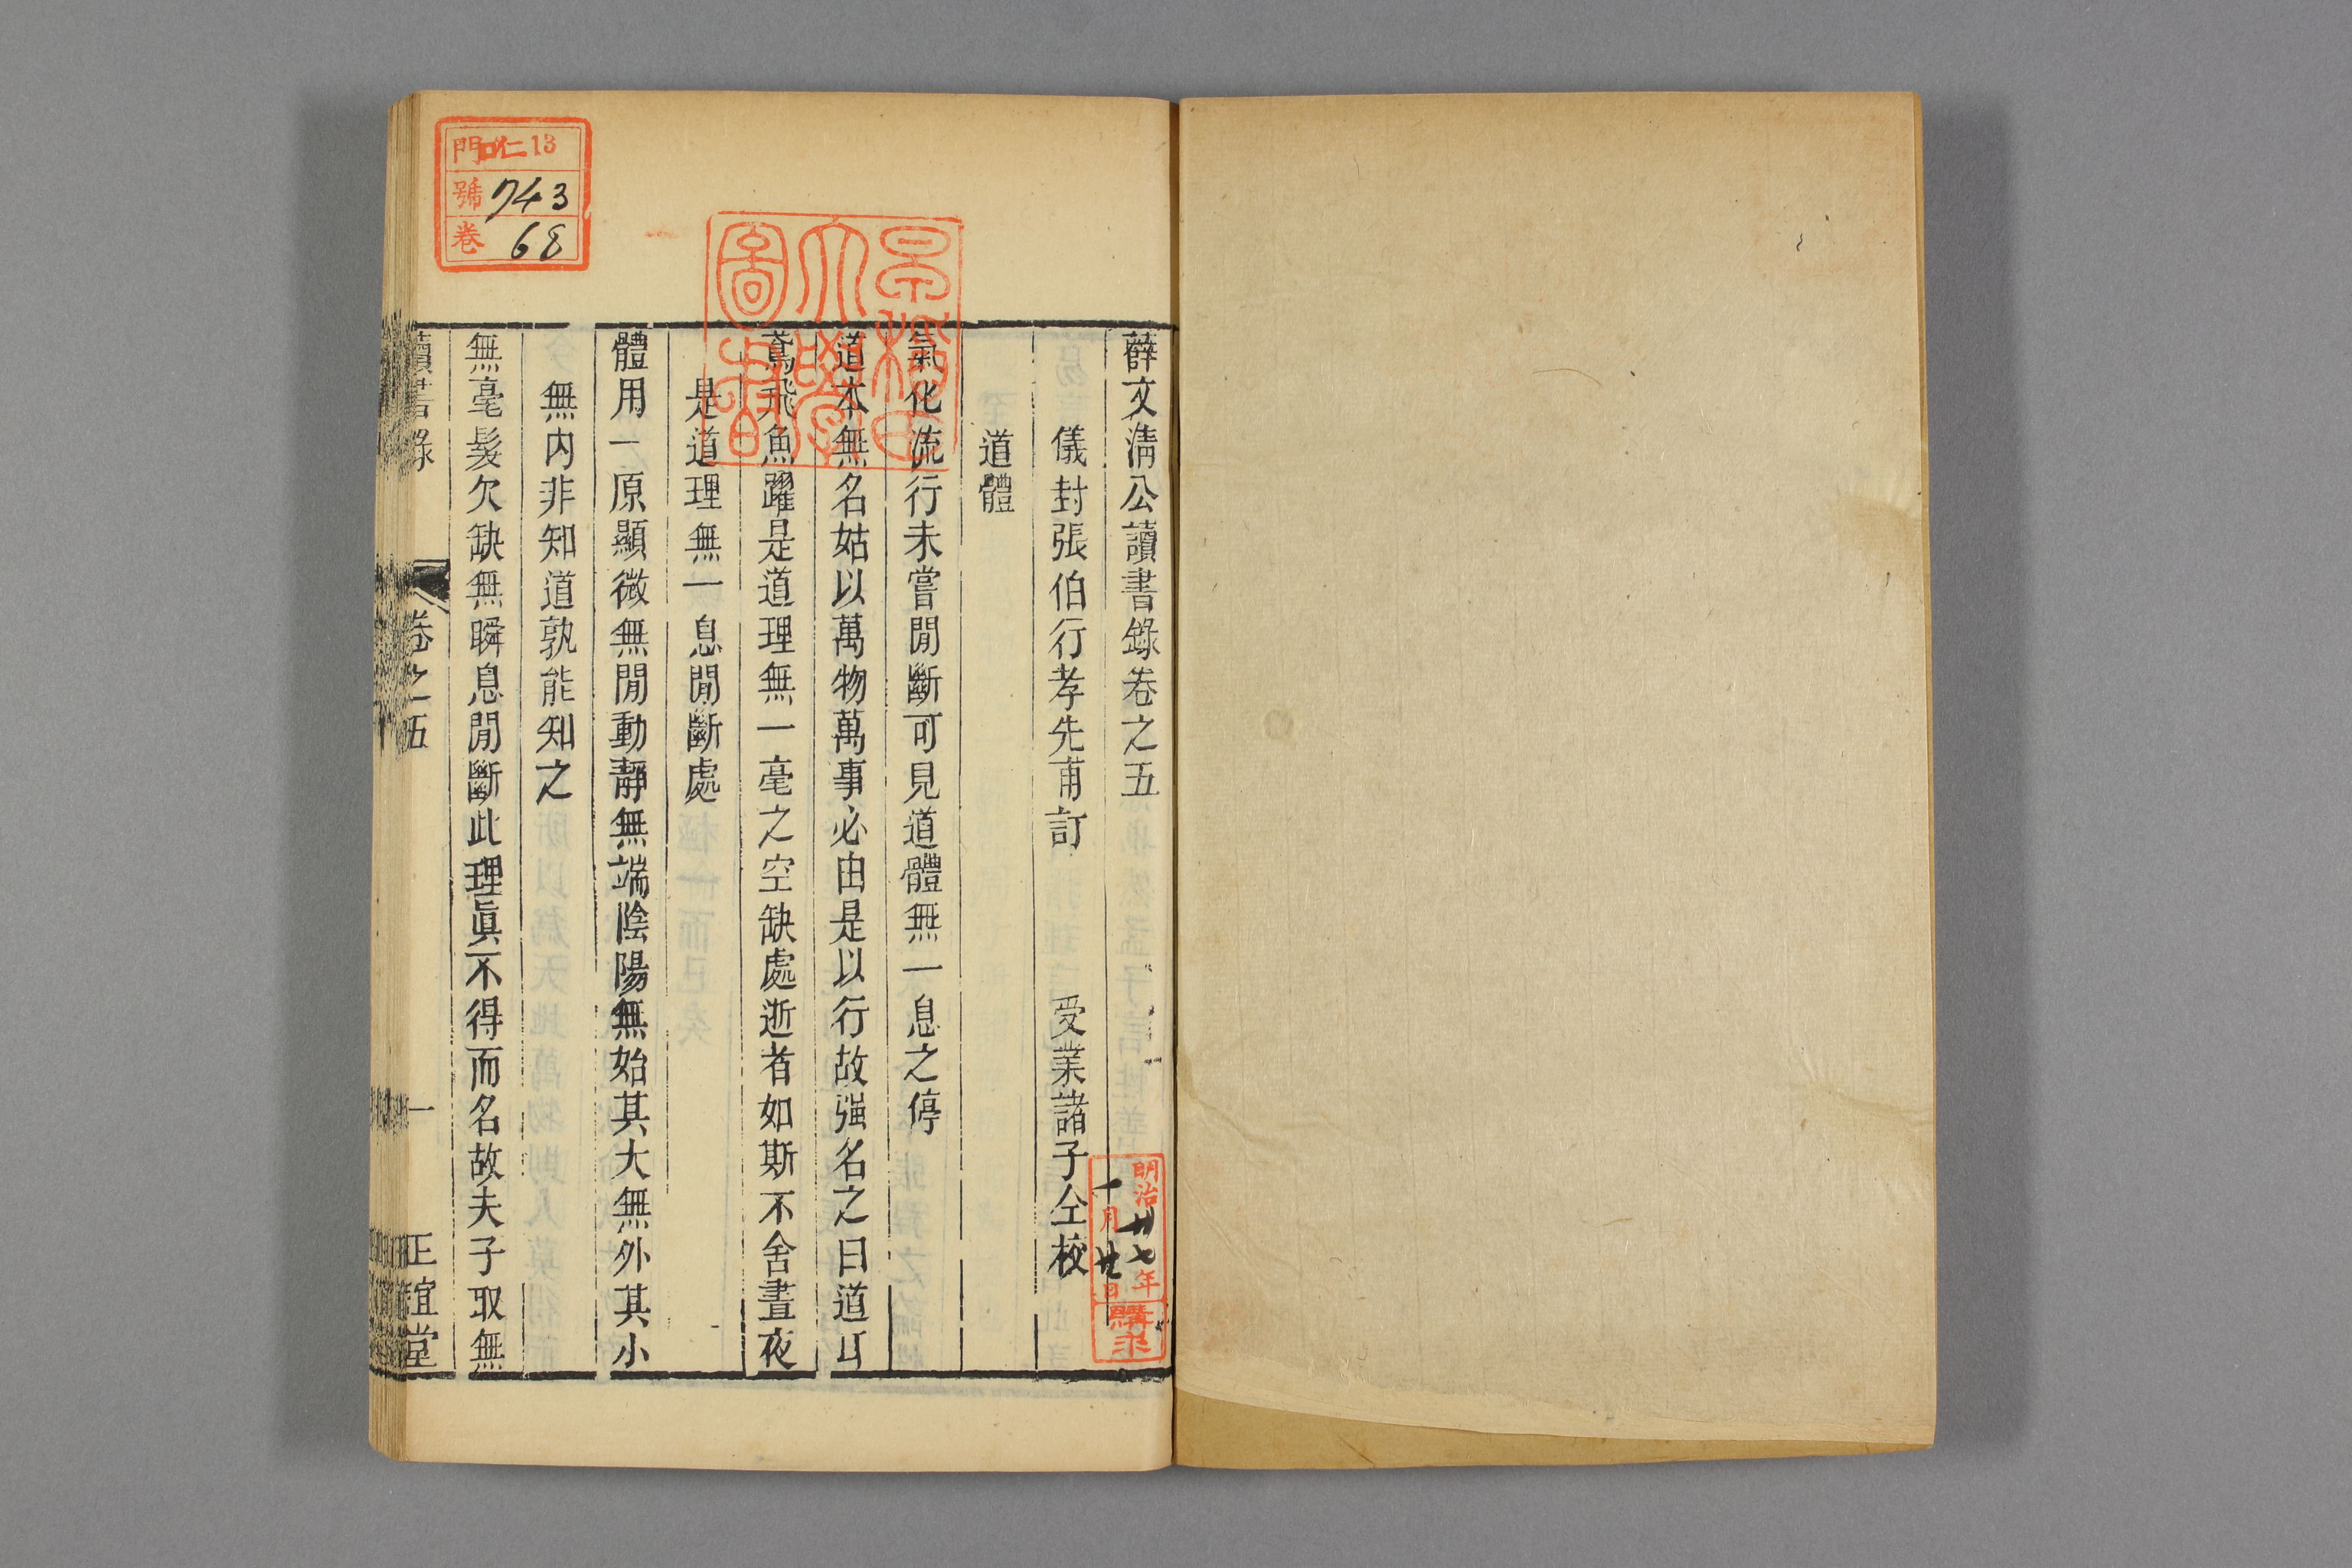 薛文清公讀書錄卷之五
儀封張伯行孝先甫訂 受業諸子仝校
道體
氣化流行未嘗閒斷可見道體無一息之停
道本無名姑以萬物萬事必由是以行故强名之曰道耳
鳶飛魚躍是道理無一毫之空缺處逝者如斯不舍晝夜
是道理無一息閒斷處
體用一原顯微無閒動靜無端陰陽無始其大無外其小
無內非知道孰能知之
無毫髮欠缺無瞬息閒斷此理眞不得而名故夫子取無
讀書錄 卷之五 一 正誼堂
門 仁13
號 743
卷 68
明治卅七年
一月廿日
購求